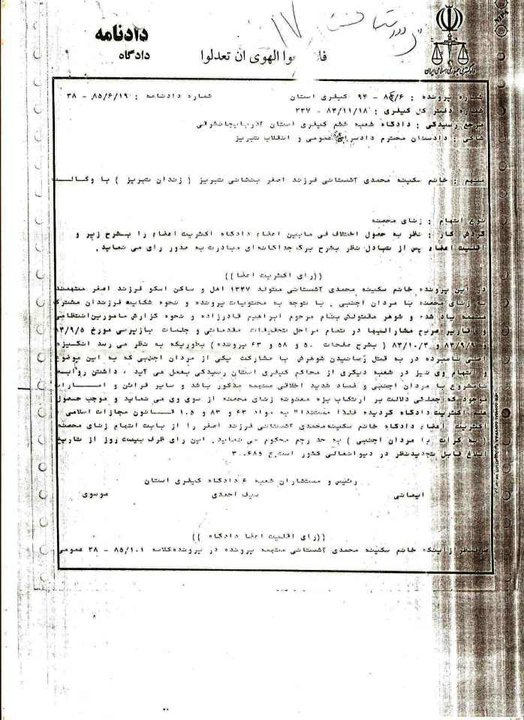 دادنامه
دادگاه
۱۷
الهوی ان تعدلوا
پرونده : ۸۵/۶ - ۹۴ کیفری استان شماره دادنامه : ۸۵/۶/۱۹ - ۳۸
دفتر کل کیفری : ۸۳/۱۱/۱۸ - ۲۳۷
رسیدگی : دادگاه شعبه ششم کیفری استان آذربایجانشرقی
دادستان محترم دادسرای عمومی و انقلاب تبریز
متهم : خانم سکینه محمدی آشتیانی فرزند اصغر بنشانی تبریز ( زندان تبریز ) با وکالت
اتهام : زنای محصنه
گردش کار : نظر به حصول اختلاف فی مابین اعضاء دادگاه اکثریت اعضاء بشرح زیر و
اقلیت اعضاء پس از تبادل نظر بشرح برگ جداگانه‌ای مبادرت به صدور رای می نماید.
((رای اکثریت اعضا))
در این پرونده خانم سکینه محمدی آشتیانی متولد ۱۳۳۷ اهل و ساکن اسکو فرزند اصغر متهمست
به زنای محصنه با مردان اجنبی . با توجه به محتویات پرونده و نحوه شکایت فرزندان مشترک
متهمه یاد شده و شوهر مقتولش بنام مرحوم ابراهیم قادرزاده و نحوه گزارش مامورین انتظامی
و اقاریر صریح مشارالیها در تمام مراحل تحقیقات مقدماتی و جلسات بازپرسی مورخ ۸۳/۹/۵
و ۸۳/۹/ و ۸۳/۱۰/ (بشرح صفحات ۵۰ و ۵۸ و ۶۳ پرونده) بطوریکه به نظر می رسد انگیزه
نامبرده در به قتل رسانیدن شوهرش با مشارکت یکی از مردان اجنبی که به این موضوع
و اتهام وی نیز در شعبه دیگری از محاکم کیفری استان رسیدگی بعمل می آید ، داشتن روابط
نامشروع با مردان اجنبی و فساد شدید اخلاقی متهمه مذکور باشد و سایر قرائن و امارات
موجود که جملگی دلالت بر ارتکاب بزه معنونه زنای محصنه از سوی وی می نماید و موجب حصول
علم اکثریت دادگاه گردیده فلذا مستندا" به مواد ۶۳ و ۸۳ و ۱۰۵ قانون مجازات اسلامی
اکثریت اعضاء دادگاه خانم سکینه محمدی آشتیانی فرزند اصغر را از بابت اتهام زنای محصنه
( به کرات با مردان اجنبی ) به حد رجم محکوم می نماید. این رای ظرف بیست روز از تاریخ
ابلاغ قابل تجدیدنظر در دیوانعالی کشور است.ع
رئیس و مستشاران شعبه ۶ دادگاه کیفری استان
ایمانی سیف احمدی موسوی
((رای اقلیت اعضا دادگاه ))
خانم سکینه محمدی آشتیانی متهمه پرونده در پرونده کلاسه ۸۵/۱۰۱ - ۳۸ عمومی